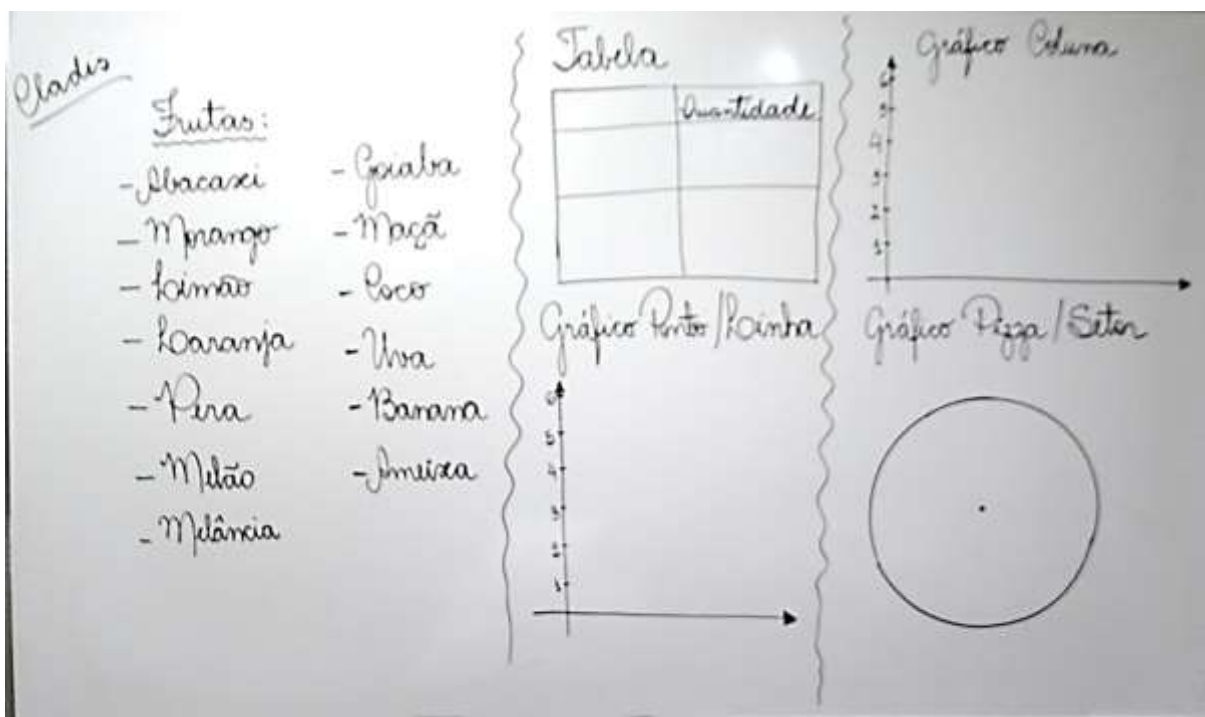 Cladis
Frutas:
- Abacaxi
- Morango
- Limão
- Laranja
- Pera
- Melão
- Melância
- Goiaba
- Maçã
- Coco
- Uva
- Banana
- Ameixa
Tabela
Quantidade
Gráfico Ponto/Linha
6
5
4
3
2
1
Gráfico Coluna
6
5
4
3
2
1
Gráfico Pizza/Setor